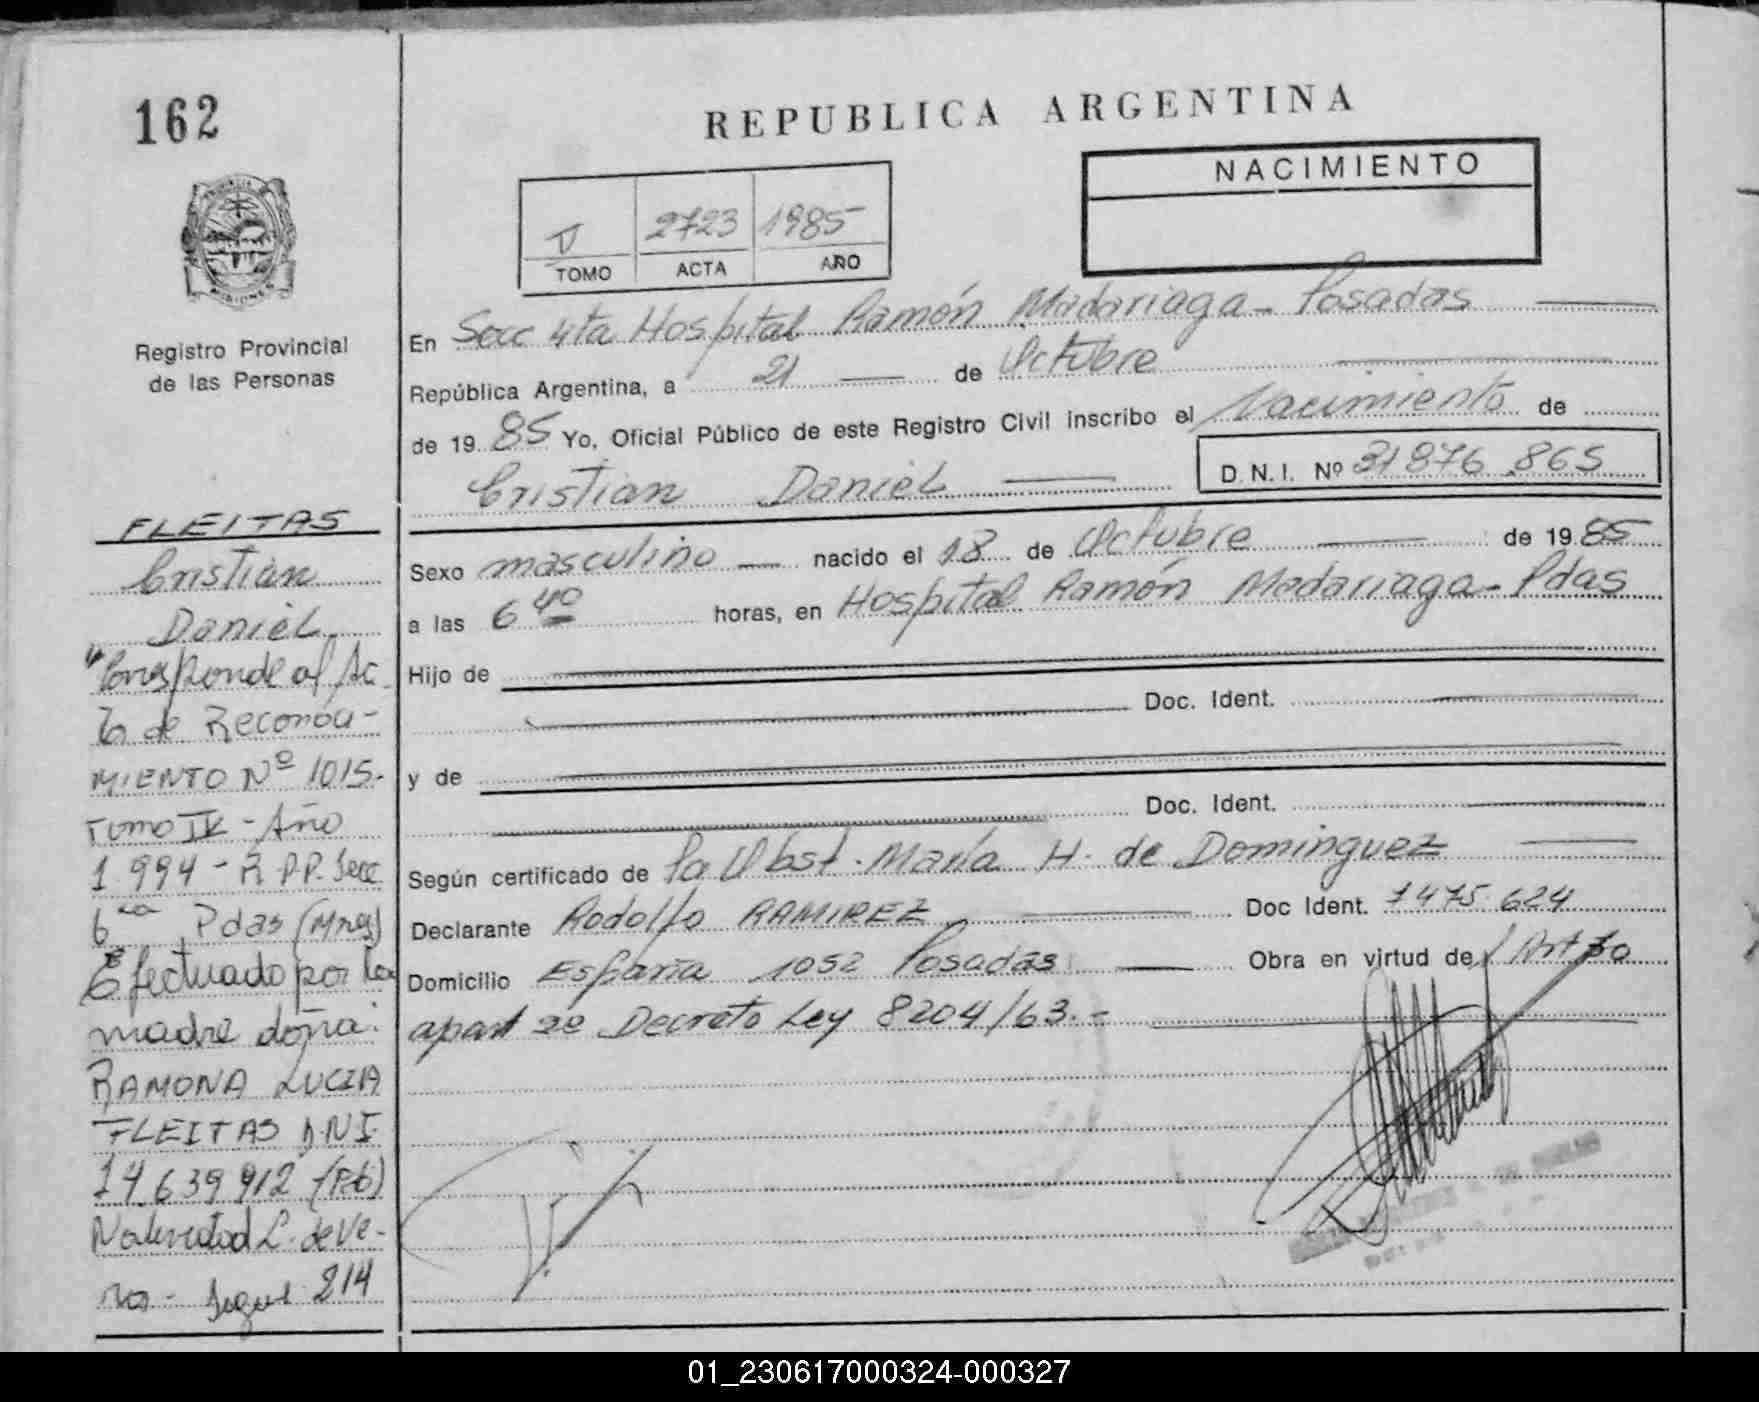 162
REPUBLICA ARGENTINA
NACIMIENTO
V 2723 1985
TOMO ACTA AÑO
MISIONES
Registro Provincial
de las Personas
En Secc 4ta Hospital Ramón Madariaga - Posadas
República Argentina, a 21 de Octubre
de 19 85 Yo, Oficial Público de este Registro Civil inscribo el Nacimiento de
Cristian Daniel D.N.I. Nº 31876.865
Sexo masculino nacido el 18 de Octubre de 19 85
a las 6 40 horas, en Hospital Ramón Madariaga - Pdas
Hijo de
Doc. Ident.
y de
Doc. Ident.
Según certificado de la Obst. María H. de Dominguez
Declarante Rodolfo RAMIREZ Doc Ident. 7475.624
Domicilio España 1052 Posadas Obra en virtud del Art 30
apart 2º Decreto Ley 8204/63.-
FLEITAS
Cristian
Daniel
"Corresponde al Ac
ta de Reconoci-
MIENTO Nº 1015.
Tomo IV - Año
1.994 - R.P.P. Secc
6ta Pdas (Mnes)
Efectuado por la
madre doña:
RAMONA LUCIA
FLEITAS DNI
14.639.912 (Fdo)
Natividad L. de Ve-
ra - Sigue 214
01_230617000324-000327